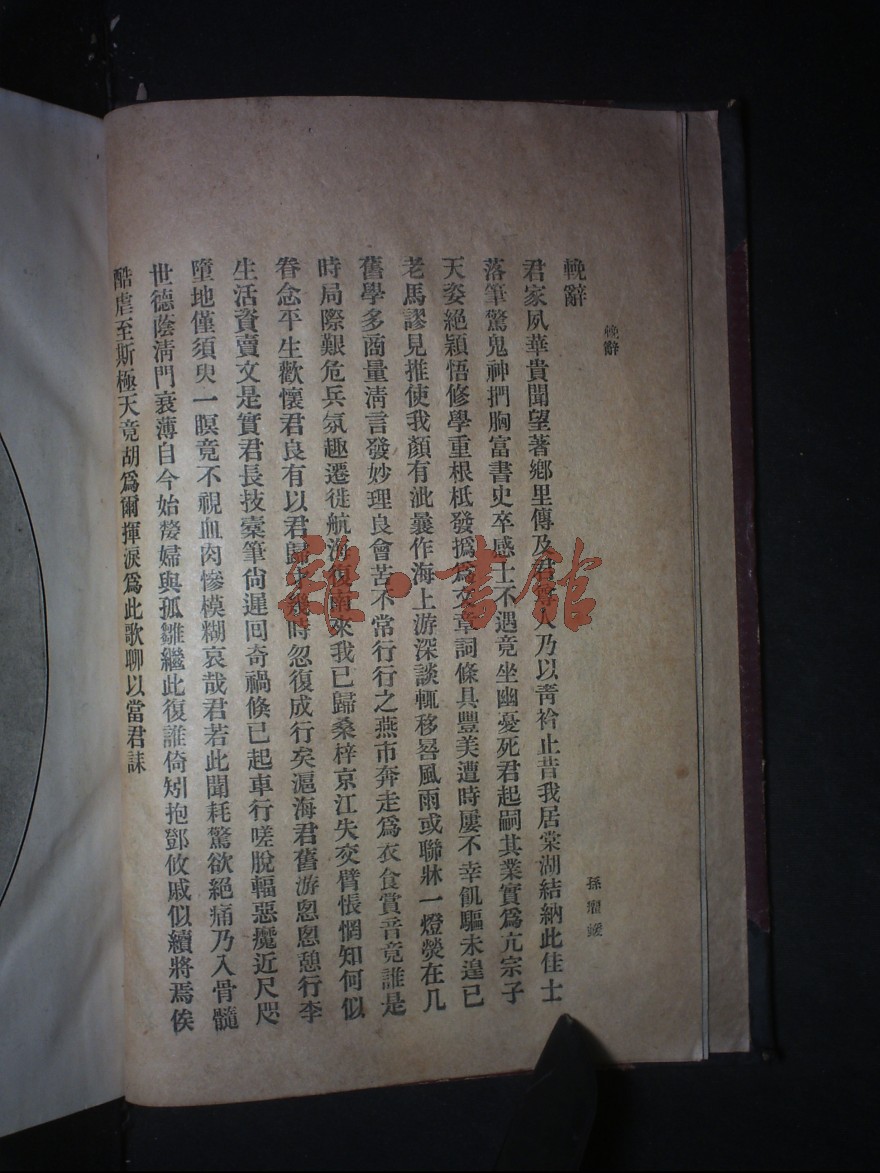 輓辭
孫
輓辭
君家夙華貴聞望著鄉里傳及君乃以青衿止昔我居棠湖結納此佳士
落筆驚鬼神捫胸富書史卒感士不遇竟坐幽憂死君起嗣其業實爲亢宗子
天姿絕穎悟修學重根柢發撝爲文章詞條具豐美遭時屢不幸飢驅未遑已
老馬謬見推使我顏有泚曩作海上游深談輒移晷風雨或聯牀一燈熒在几
舊學多商量淸言發妙理良會苦不常行行之燕市奔走爲衣食賞音竟誰是
時局際艱危兵氛趣遷徙航海復南來我已歸桑梓京江失交臂悵惘知何似
眷念平生歡懷君良有以君歸才幾時忽復成行矣滬海君舊游恖恖憩行李
生活資賣文是實君長技橐筆尙遲回奇禍倏已起車行嗟脫輻惡魔近尺咫
墮地僅須臾一暝竟不視血肉慘模糊哀哉君若此聞耗驚欲絕痛乃入骨髓
世德蔭淸門衰薄自今始嫠婦與孤雛繼此復誰倚矧抱鄧攸戚似續將焉俟
酷虐至斯極天竟胡爲爾揮淚爲此歌聊以當君誄
雜·書館